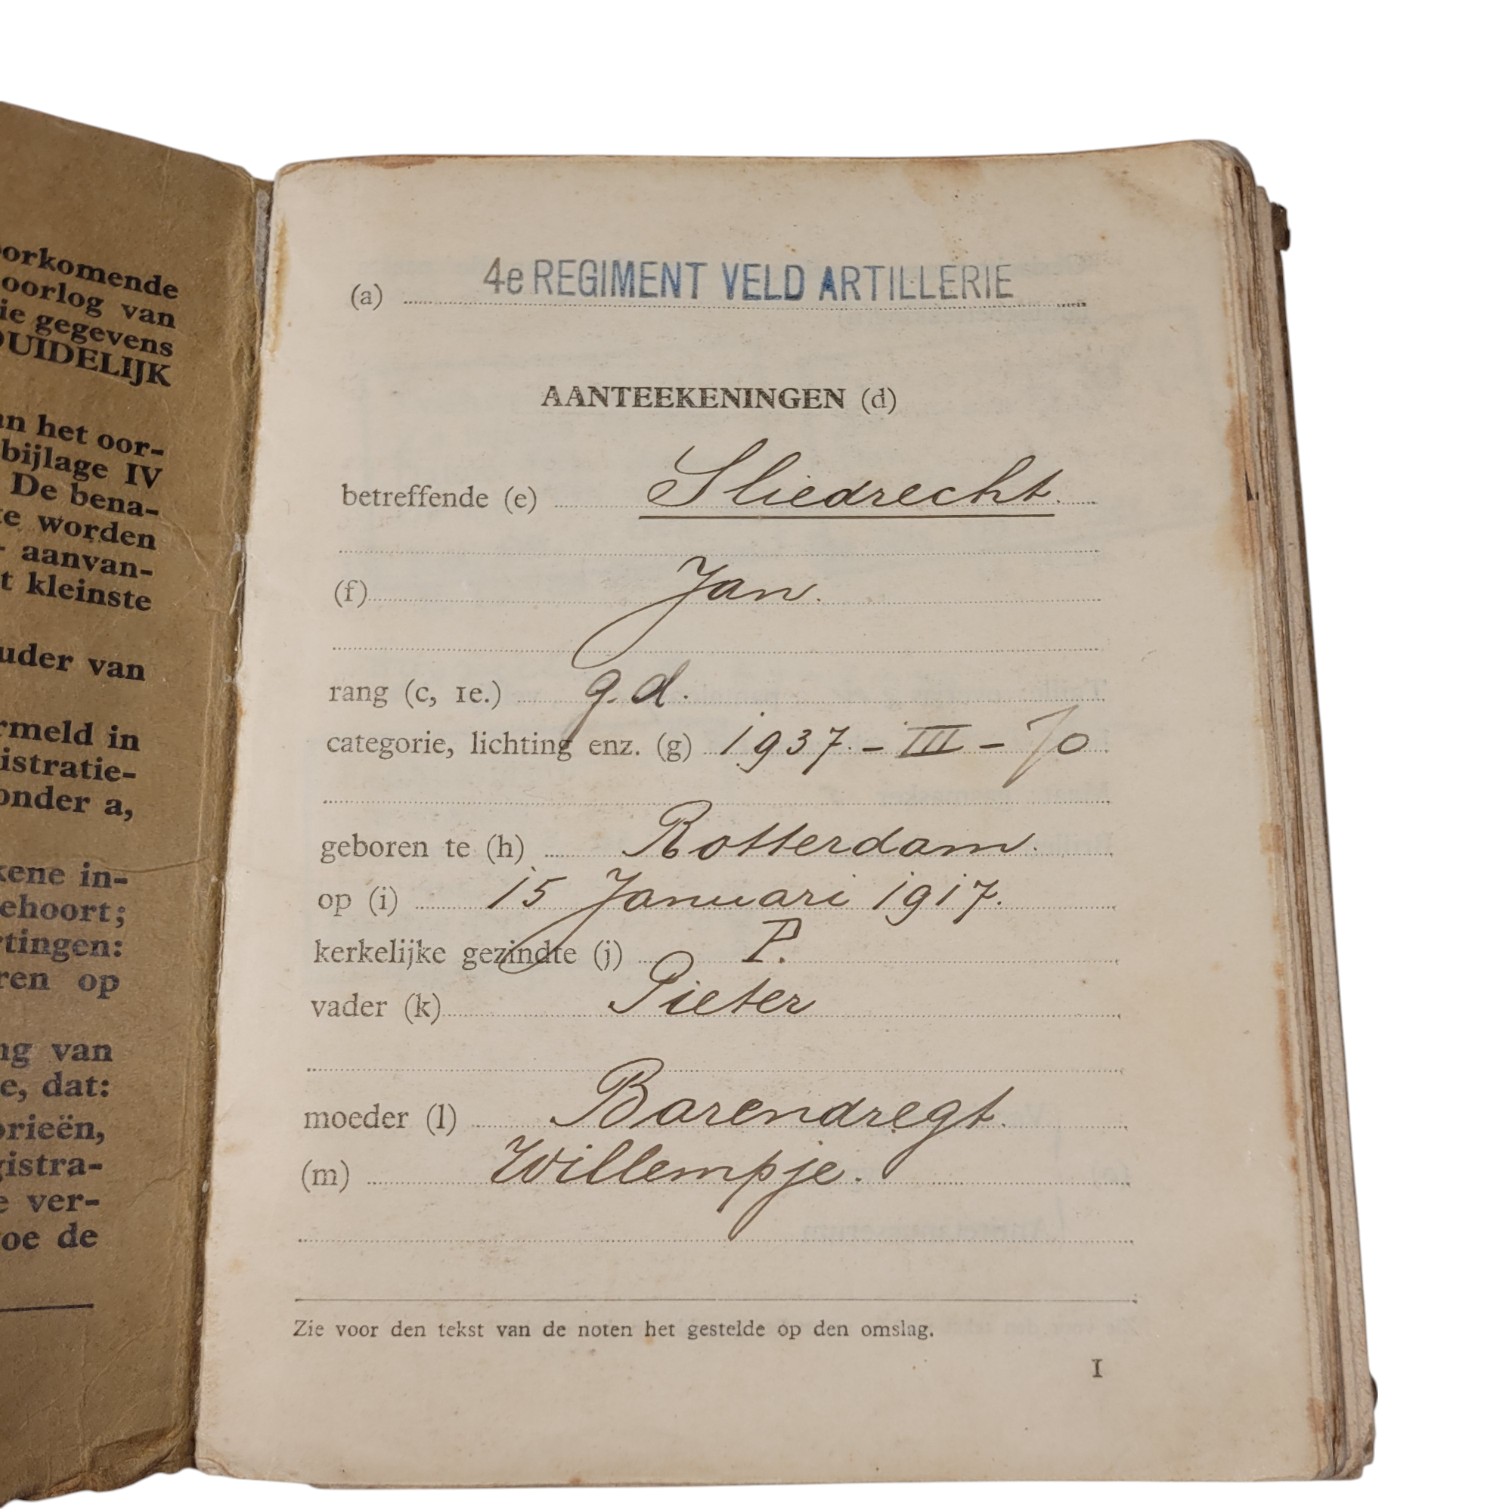 orkomende
oorlog van
ie gegevens
DUIDELIJK
an het oor-
bijlage IV
De bena-
te worden
aanvan-
t kleinste
uder van
rmeld in
istratie-
onder a,
kene in-
ehoort;
rtingen:
ren op
ng van
e, dat:
orieën,
gistra-
e ver-
oe de
(a) 4e REGIMENT VELD ARTILLERIE
AANTEEKENINGEN (d)
betreffende (e) Sliedrecht.
(f) Jan.
rang (c, 1e.) g.d.
categorie, lichting enz. (g) 1937. - III - 70
geboren te (h) Rotterdam.
op (i) 15 Januari 1917.
kerkelijke gezindte (j) P.
vader (k) Pieter
moeder (l) Barendregt.
(m) Willempje.
Zie voor den tekst van de noten het gestelde op den omslag.
1